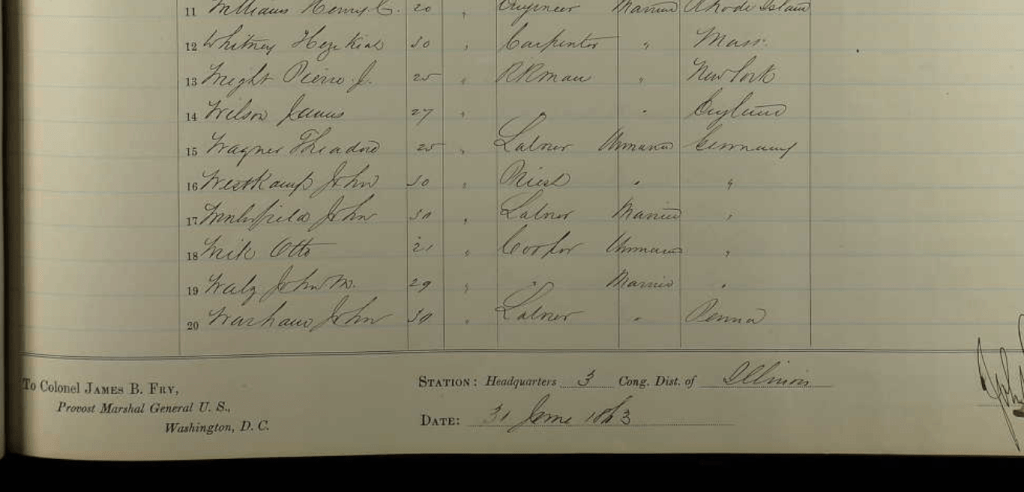 11 Williams Henry C. 20 " Engineer Married Rhode Island
12 Whitney Hezekiah 30 " Carpenter " Mass.
13 Wright Pierre J. 25 " RRman " New York
14 Wilson James 27 " " " England
15 Wagner Theodore 25 " Laborer Unmarried Germany
16 Westkamp John 30 " Priest " "
17 John 30 " Laborer Married "
18 Otto 21 " Cooper Unmarried "
19 Walz John M. 29 " " Married "
20 John 30 " Laborer " Penna
To Colonel JAMES B. FRY,
Provost Marshal General U. S.,
Washington, D. C.
STATION: Headquarters 3 Cong. Dist. of Illinois
DATE: 30 June 1863